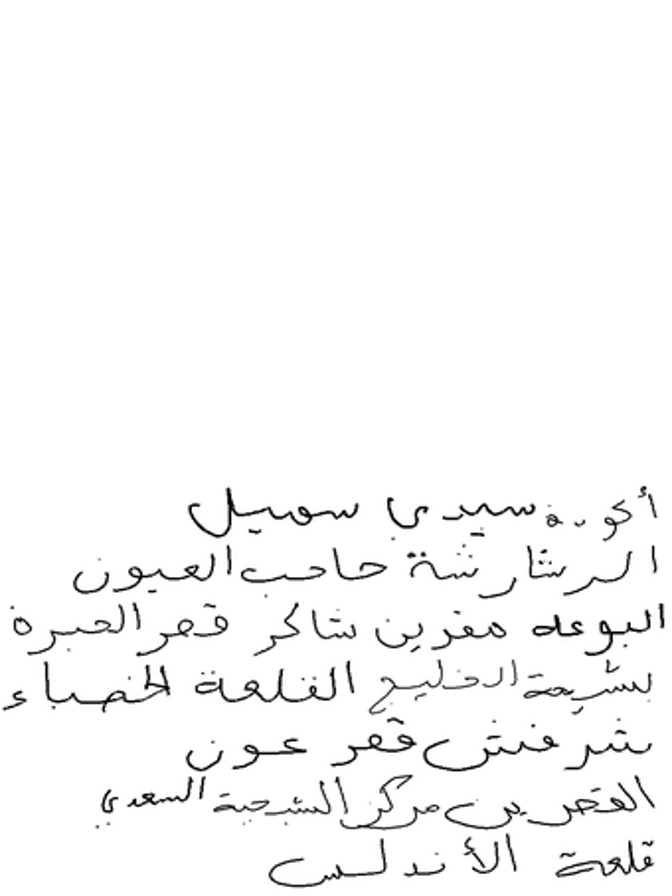 أكويرة سيدي سهيل
الرشارشة حاحب العيون
البوعله مفرين شاكر قصر الصبرة
بشريحة الخليج القلعة الخضباء
شرفنش قفر عون
القصرين مركز الشيحية السعدي
قلعة الأندلس